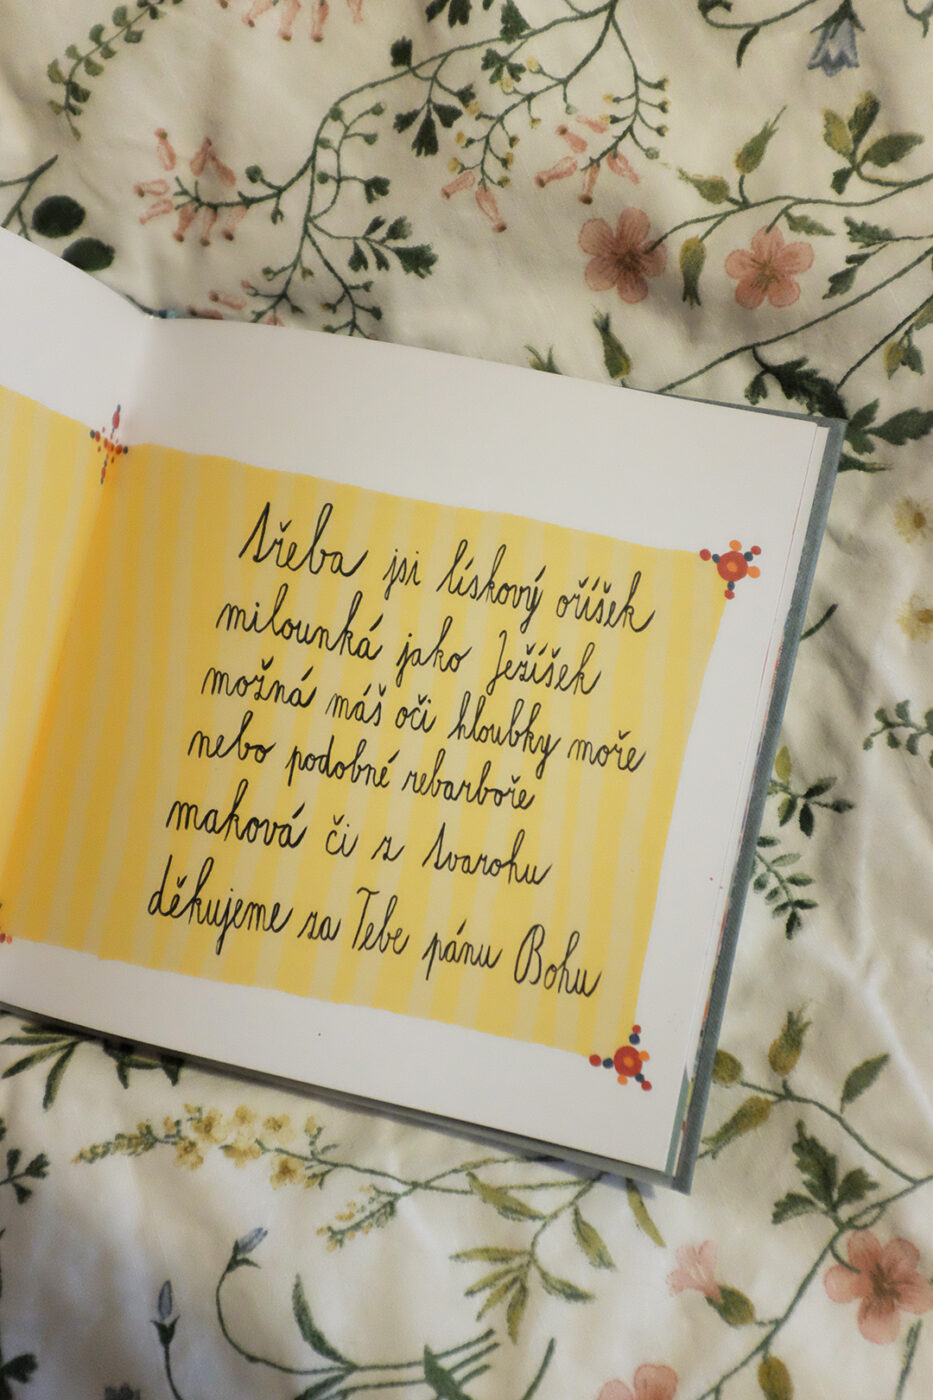 třeba jsi lískový oříšek
milounká jako Ježíšek
možná máš oči hloubky moře
nebo podobné rebarboře
maková či z tvarohu
děkujeme za Tebe pánu Bohu